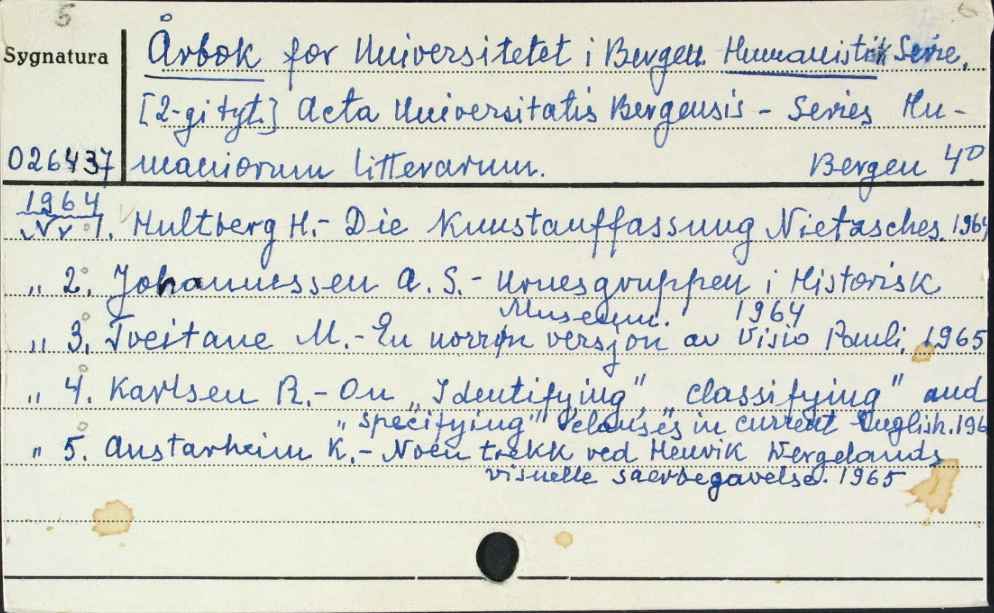 5 6
Sygnatura Årbok for Universitetet i Bergen. Humanistisk Serie.
[2-gi tyt.] Acta Universitatis Bergensis - Series Hu-
026437 maniorum litterarum. Bergen 4º
1964
Nr 1. Hultberg H.- Die Kunstauffassung Nietzsches. 1964
„ 2. Johannessen A. S.- Urnesgruppen i Historisk
Museum. 1964
„ 3. Tveitane M.- En norrøn versjon av Visio Pauli. 1965
„ 4. Karlsen R.- On „Identifying", „classifying" and
„specifying" clauses in current English. 196
„ 5. Austarheim K.- Noen trekk ved Henrik Wergelands
visuelle saerbegavelse. 1965